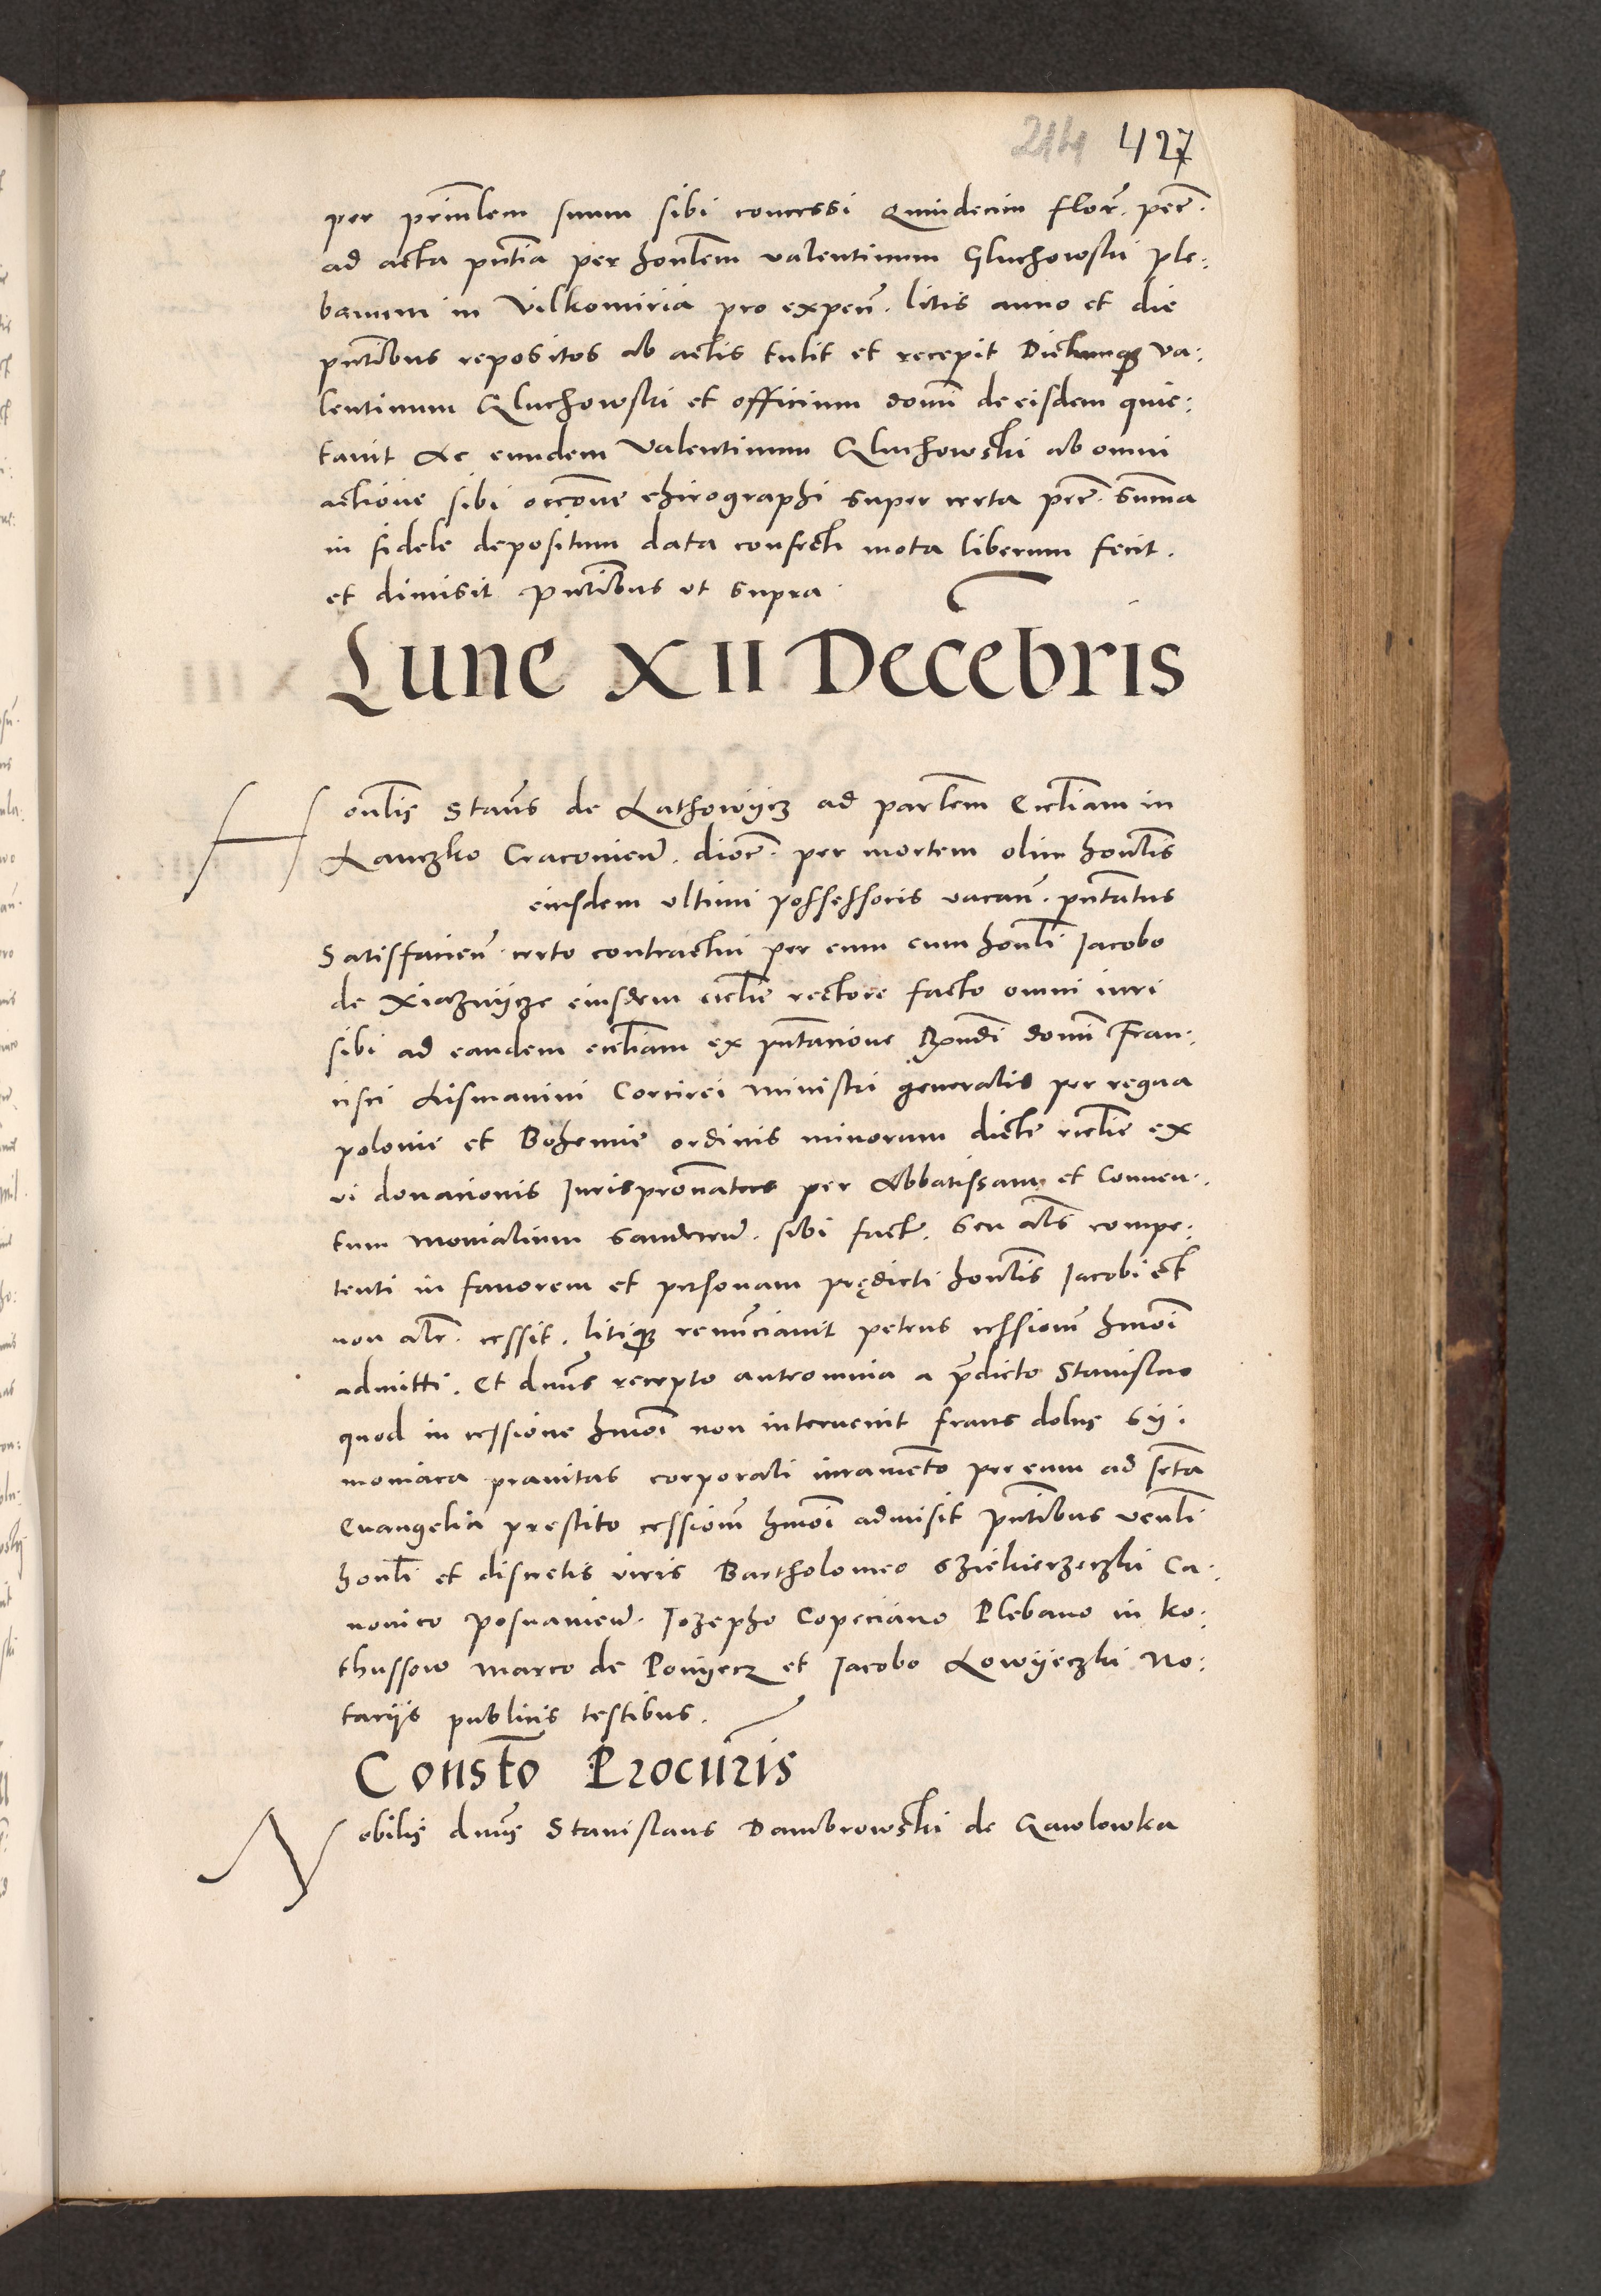 214 427
per prinlem suum sibi concessi Quindecim flor. pec.
ad acta pntia per honlem valentinum Gluchowski ple:
banum in Vilkomiria pro expen. litis anno et die
pntibus repositos ab actis tulit et recepit Dictumq va:
lentinum Gluchowski et officium domi de eisdem quie:
tavit Ac eundem Valentinum Gluchowski ab omni
actione sibi occone chirographi super certa pec. summa
in fidele depositum data confecti mota liberum fecit.
et dimisit pntibus ut supra.
Lune XII Decebris
Honlis Staus de Lathowycz ad parlem Eccliam in
Lanczko Cracovien. dioc. per mortem olim honlis
eiusdem ultimi possessoris vacan. pntatus
Satisfacien. certo contractui per eum cum honli Jacobo
de Xiaznycze eiusdem ecclie rectore facto omni iuri
sibi ad eandem eccliam ex pntacione Rndi domi Fran:
cisci Lismanini Corcirei ministri generalis per regna
polonie et Bohemie ordinis minorum dicte ecclie ex
vi donacionis Jurispronatus per Abbatissam et Conven:
tum monialium Sandecen. sibi fact. seu als compe:
tenti in favorem et personam prędicti honlis Jacobi et
non alr. cessit. litiq renunciavit petens cessionem hmoi
admitti. Et dnus recepto anteomnia a pdicto Stanislao
quod in cessione hmoi non intervenit fraus dolus sy:
moniaca pravitas corporali iuramento per eum ad scta
Evangelia prestito cessionem hmoi admisit pntibus venli
honli et discretis viris Bartholomeo Sziekierzeczki Ca:
nonico posnanien. Jozepho Copeciano Plebano in Ko:
thussow Marco de Ponyecz et Jacobo Lowyeczki No:
tariis publicis testibus.
Consto Procuris
Nobilis dnus Stanislaus Dambrowski de Gawlowka